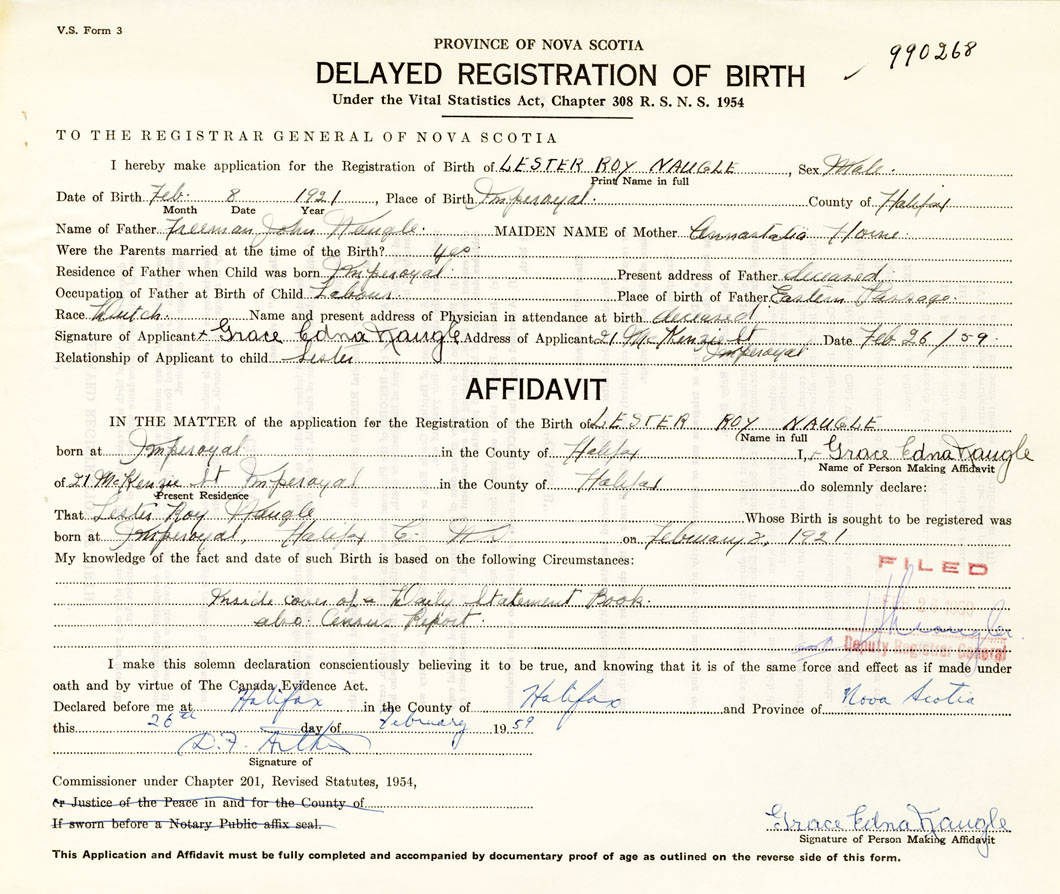 V.S. Form 3
PROVINCE OF NOVA SCOTIA
990268
DELAYED REGISTRATION OF BIRTH
Under the Vital Statistics Act, Chapter 308 R. S. N. S. 1954
TO THE REGISTRAR GENERAL OF NOVA SCOTIA
I hereby make application for the Registration of Birth of LESTER ROY NAUGLE, Sex Male.
Print Name in full
Date of Birth Feb. 8 1921, Place of Birth Imperoyal. County of Halifax
Month Date Year
Name of Father Freeman John Naugle. MAIDEN NAME of Mother Annastatia Horne.
Were the Parents married at the time of the Birth? yes
Residence of Father when Child was born Imperoyal. Present address of Father deceased.
Occupation of Father at Birth of Child Labour. Place of birth of Father Eastern Passage.
Race Dutch. Name and present address of Physician in attendance at birth deceased.
Signature of Applicant x Grace Edna Naugle Address of Applicant 21 McKenzie St Imperoyal Date Feb 26/59.
Relationship of Applicant to child Sister
AFFIDAVIT
IN THE MATTER of the application for the Registration of the Birth of LESTER ROY NAUGLE
(Name in full
born at Imperoyal in the County of Halifax I, x Grace Edna Naugle
Name of Person Making Affidavit
of 21 McKenzie St Imperoyal in the County of Halifax do solemnly declare:
Present Residence
That Roy Naugle Whose Birth is sought to be registered was
born at Imperoyal, Halifax C. N.S. on February 8, 1921
My knowledge of the fact and date of such Birth is based on the following Circumstances:
FILED
Inside cover of a Daily Statement Book.
also Census Report.
Deputy Registrar General
I make this solemn declaration conscientiously believing it to be true, and knowing that it is of the same force and effect as if made under
oath and by virtue of The Canada Evidence Act.
Declared before me at Halifax in the County of Halifax and Province of Nova Scotia
this 26th day of February 1959
D.F.
Signature of
Commissioner under Chapter 201, Revised Statutes, 1954,
or Justice of the Peace in and for the County of
If sworn before a Notary Public affix seal.
Grace Edna Naugle
Signature of Person Making Affidavit
This Application and Affidavit must be fully completed and accompanied by documentary proof of age as outlined on the reverse side of this form.